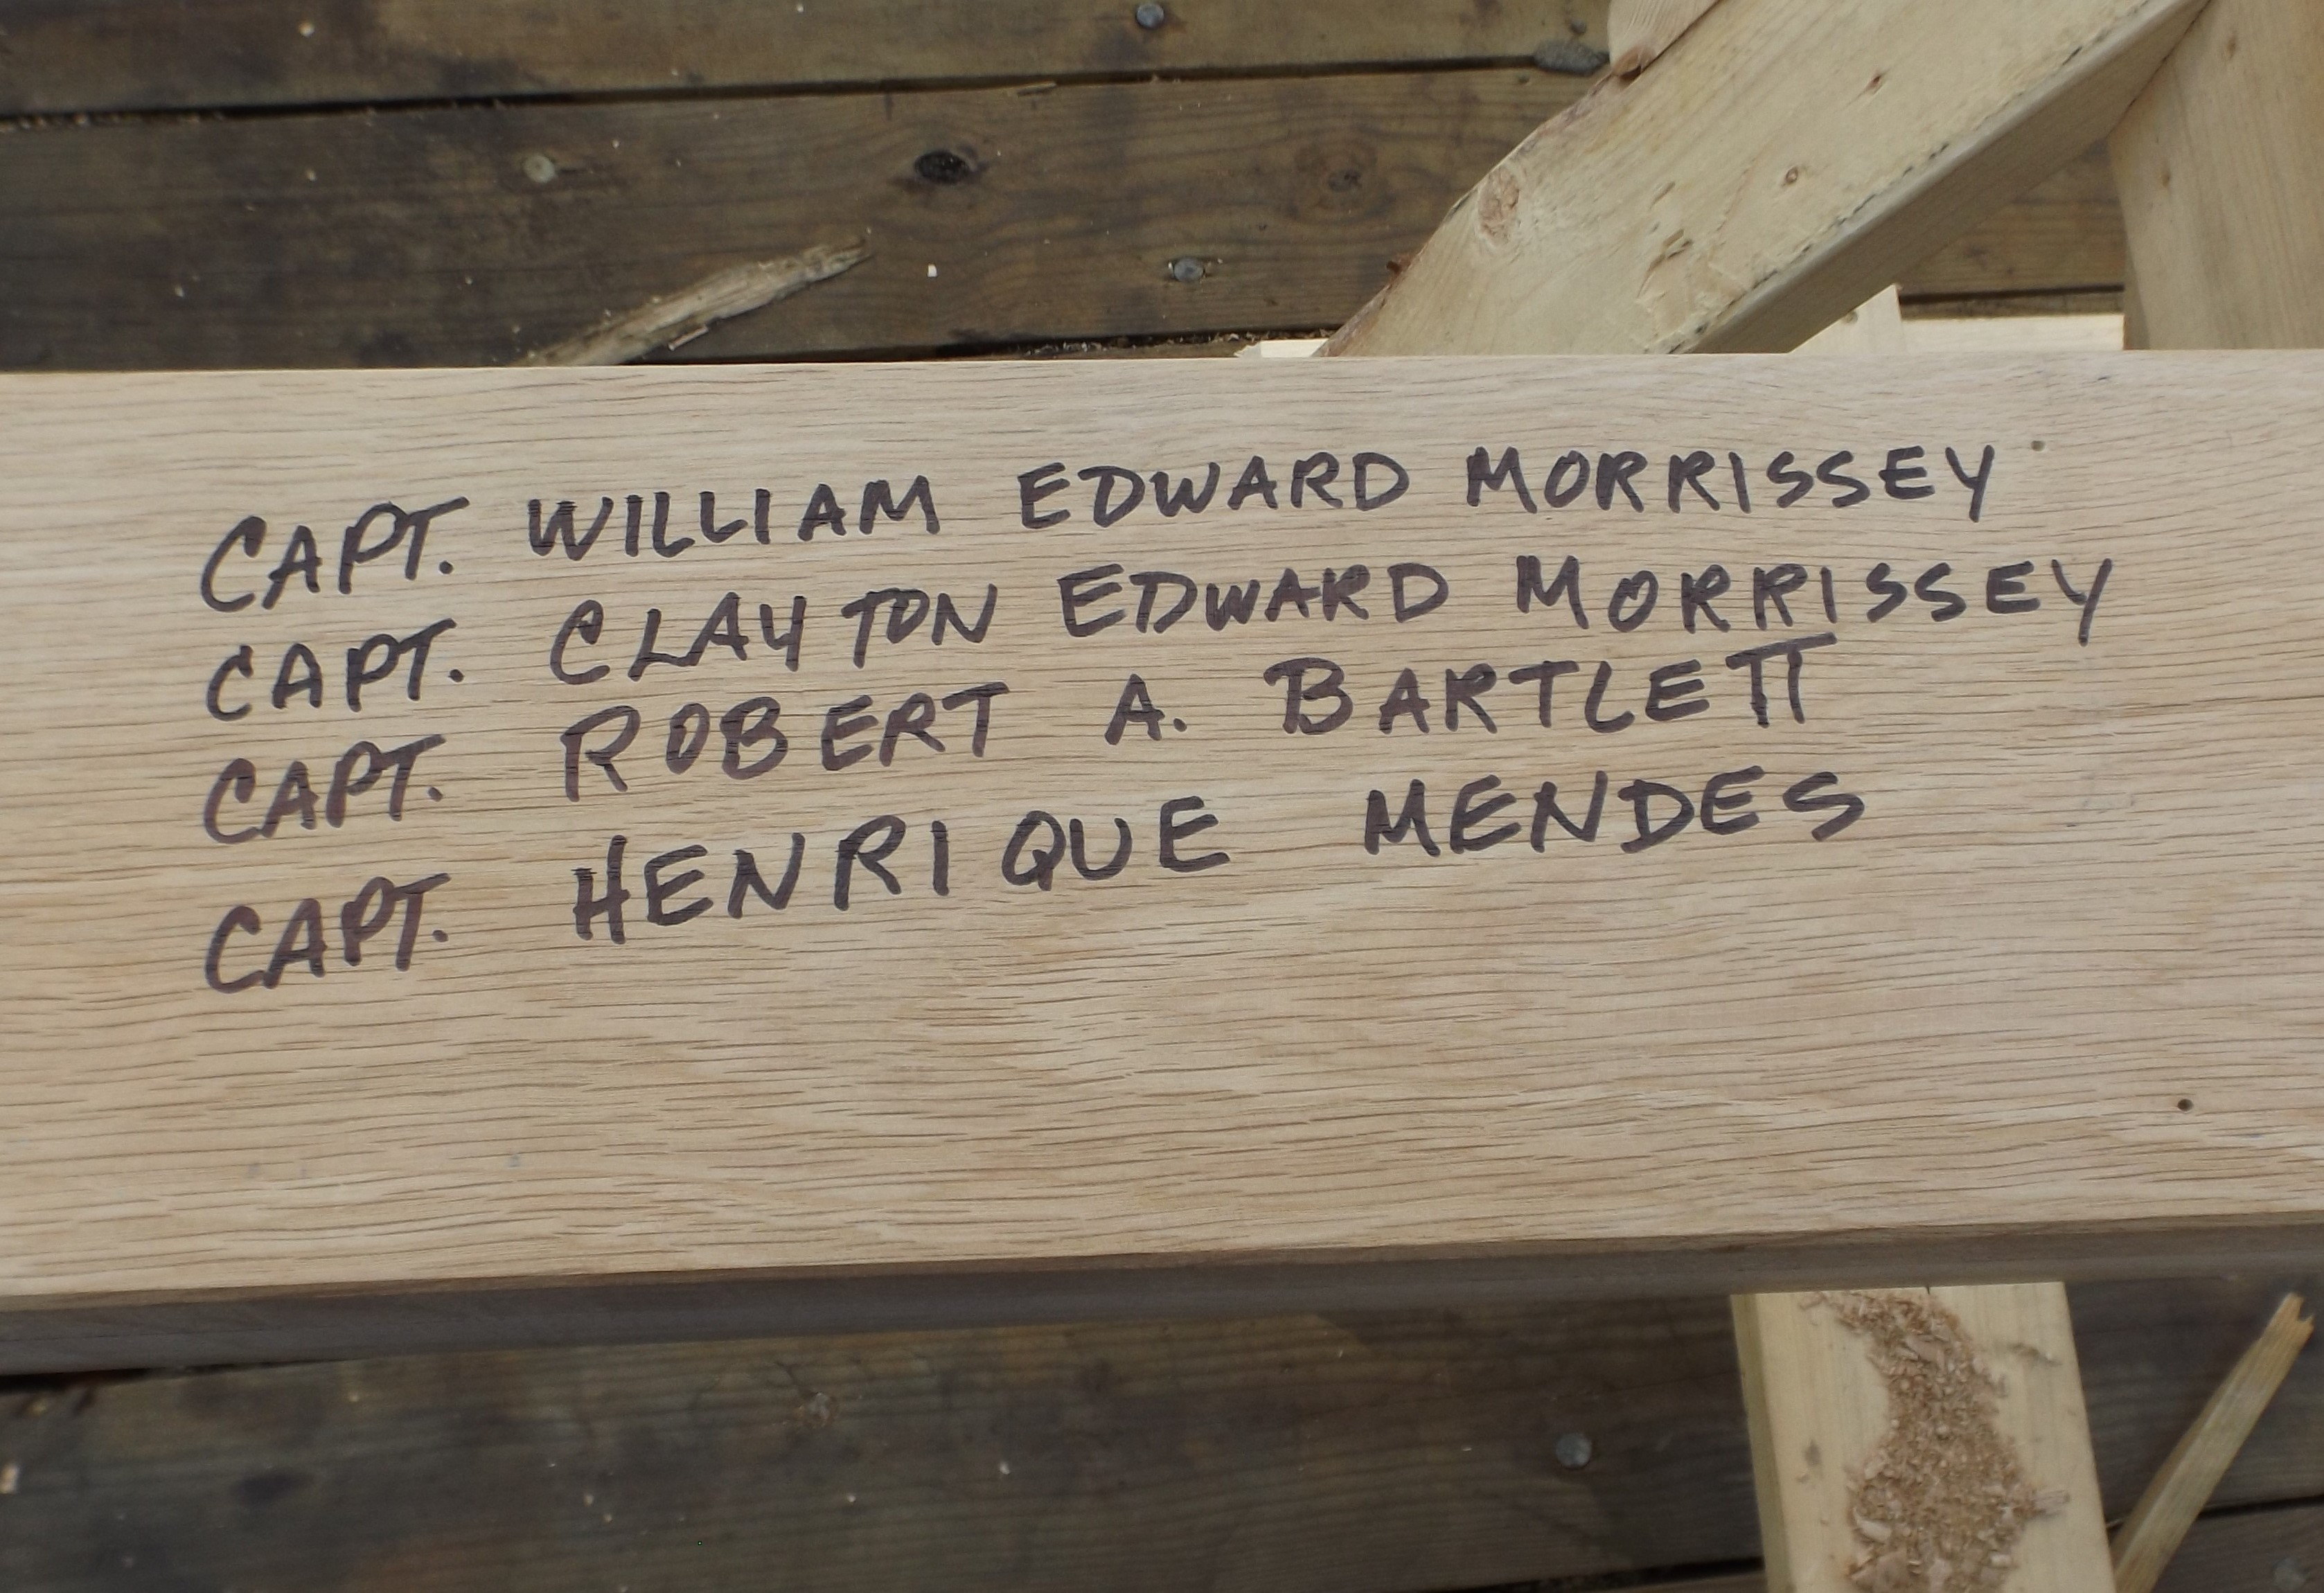 CAPT. WILLIAM EDWARD MORRISSEY
CAPT. CLAYTON EDWARD MORRISSEY
CAPT. ROBERT A. BARTLETT
CAPT. HENRIQUE MENDES